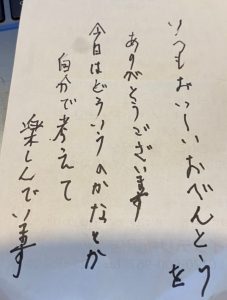 いつもおいしいおべんとうを
ありがとうございます
今日はどういうのかなとか
自分で考えて
楽しんでいます